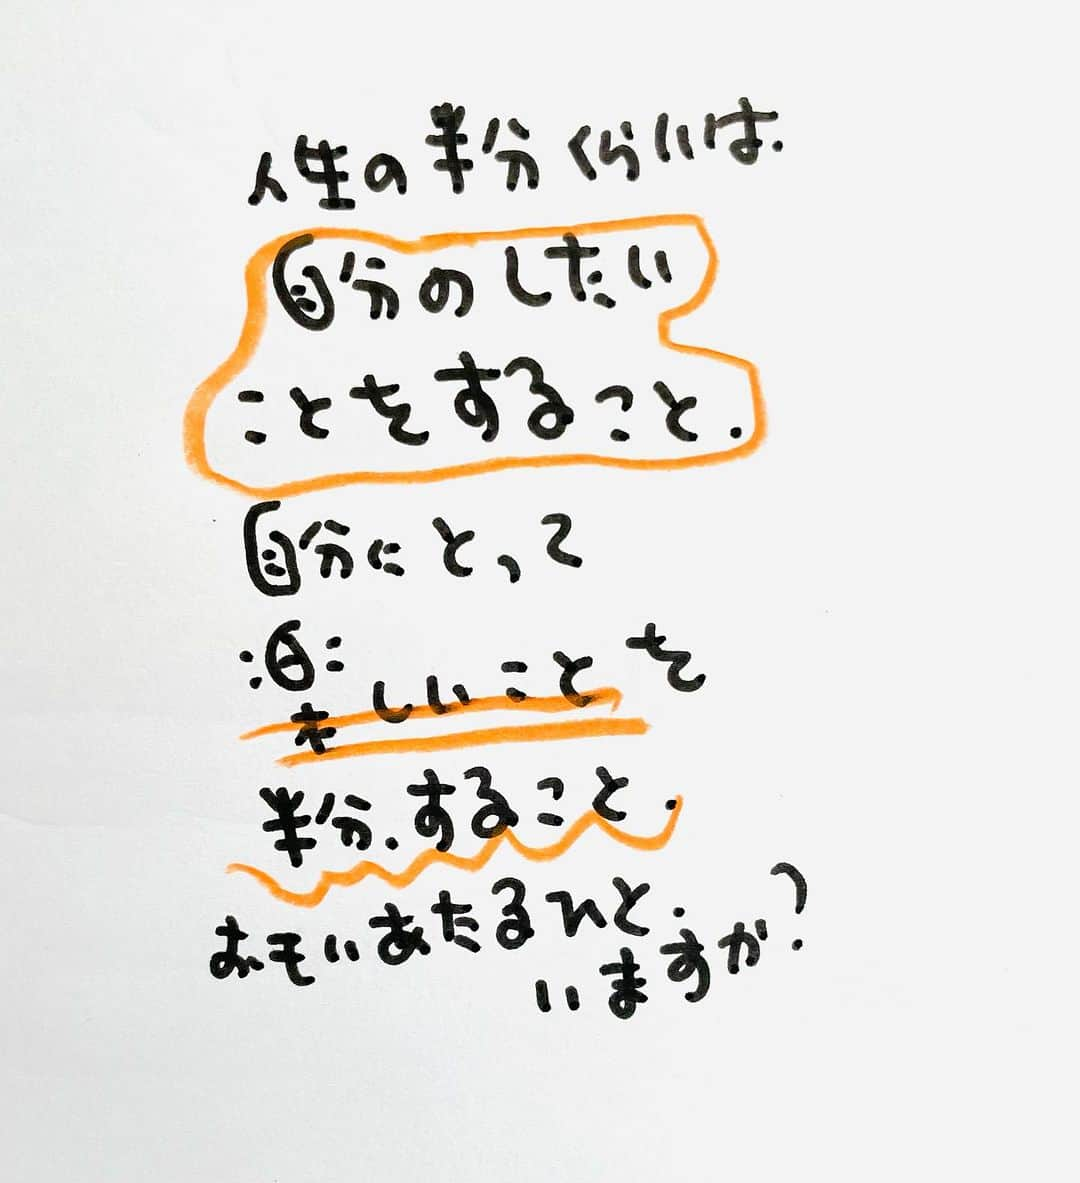 人生の半分くらいは.
自分のしたい
ことをすること.
自分にとって
楽しいことを
半分.すること.
おもいあたるひと.
いますか?